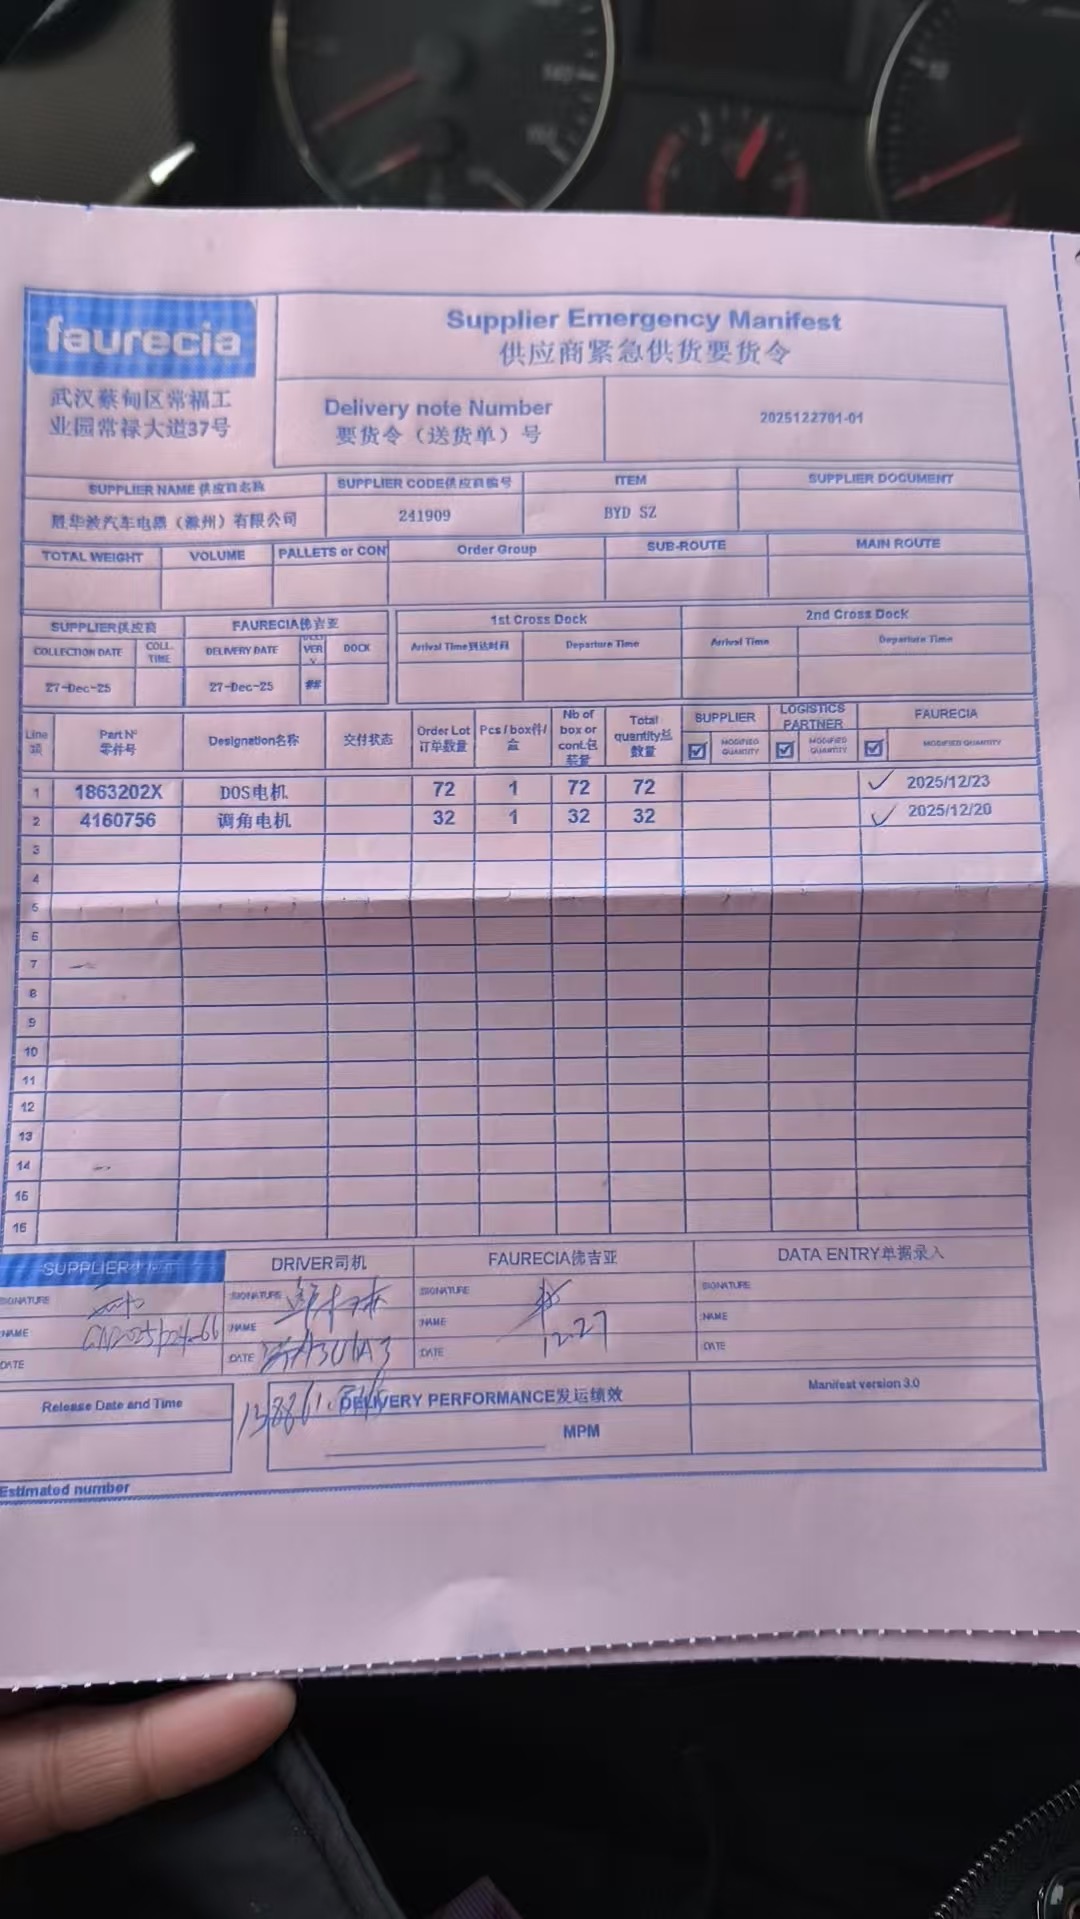 faurecia
武汉蔡甸区常福工
业园常禄大道37号
Supplier Emergency Manifest
供应商紧急供货要货令
Delivery note Number
要货令（送货单）号
2025122701-01
SUPPLIER NAME 供应商名称
SUPPLIER CODE供应商编号
ITEM
SUPPLIER DOCUMENT
胜华波汽车电器（滁州）有限公司
241909
BYD SZ
TOTAL WEIGHT
VOLUME
PALLETS or CON
Order Group
SUB-ROUTE
MAIN ROUTE
SUPPLIER供应商
FAURECIA佛吉亚
1st Cross Dock
2nd Cross Dock
COLLECTION DATE
COLL. TIME
DELIVERY DATE
VER
DOCK
Arrival Time到达时间
Departure Time
Arrival Time
Departure Time
27-Dec-25
27-Dec-25
##
Line
Part N° 零件号
Designation名称
交付状态
Order Lot 订单数量
Pcs / box件/盒
Nb of box or cont.包装量
Total quantity总数量
SUPPLIER
MODIFIED QUANTITY
LOGISTICS PARTNER
MODIFIED QUANTITY
FAURECIA
MODIFIED QUANTITY
1 1863202X DOS电机 72 1 72 72 ✓ 2025/12/23
2 4160756 调角电机 32 1 32 32 ✓ 2025/12/20
3
4
5
6
7
8
9
10
11
12
13
14
15
16
SUPPLIER
DRIVER司机
FAURECIA佛吉亚
DATA ENTRY单据录入
SIGNATURE
SIGNATURE
SIGNATURE
SIGNATURE
NAME
NAME
NAME
NAME
DATE
DATE
DATE
12.27
DATE
Release Date and Time
DELIVERY PERFORMANCE发运绩效
Manifest version 3.0
MPM
Estimated number